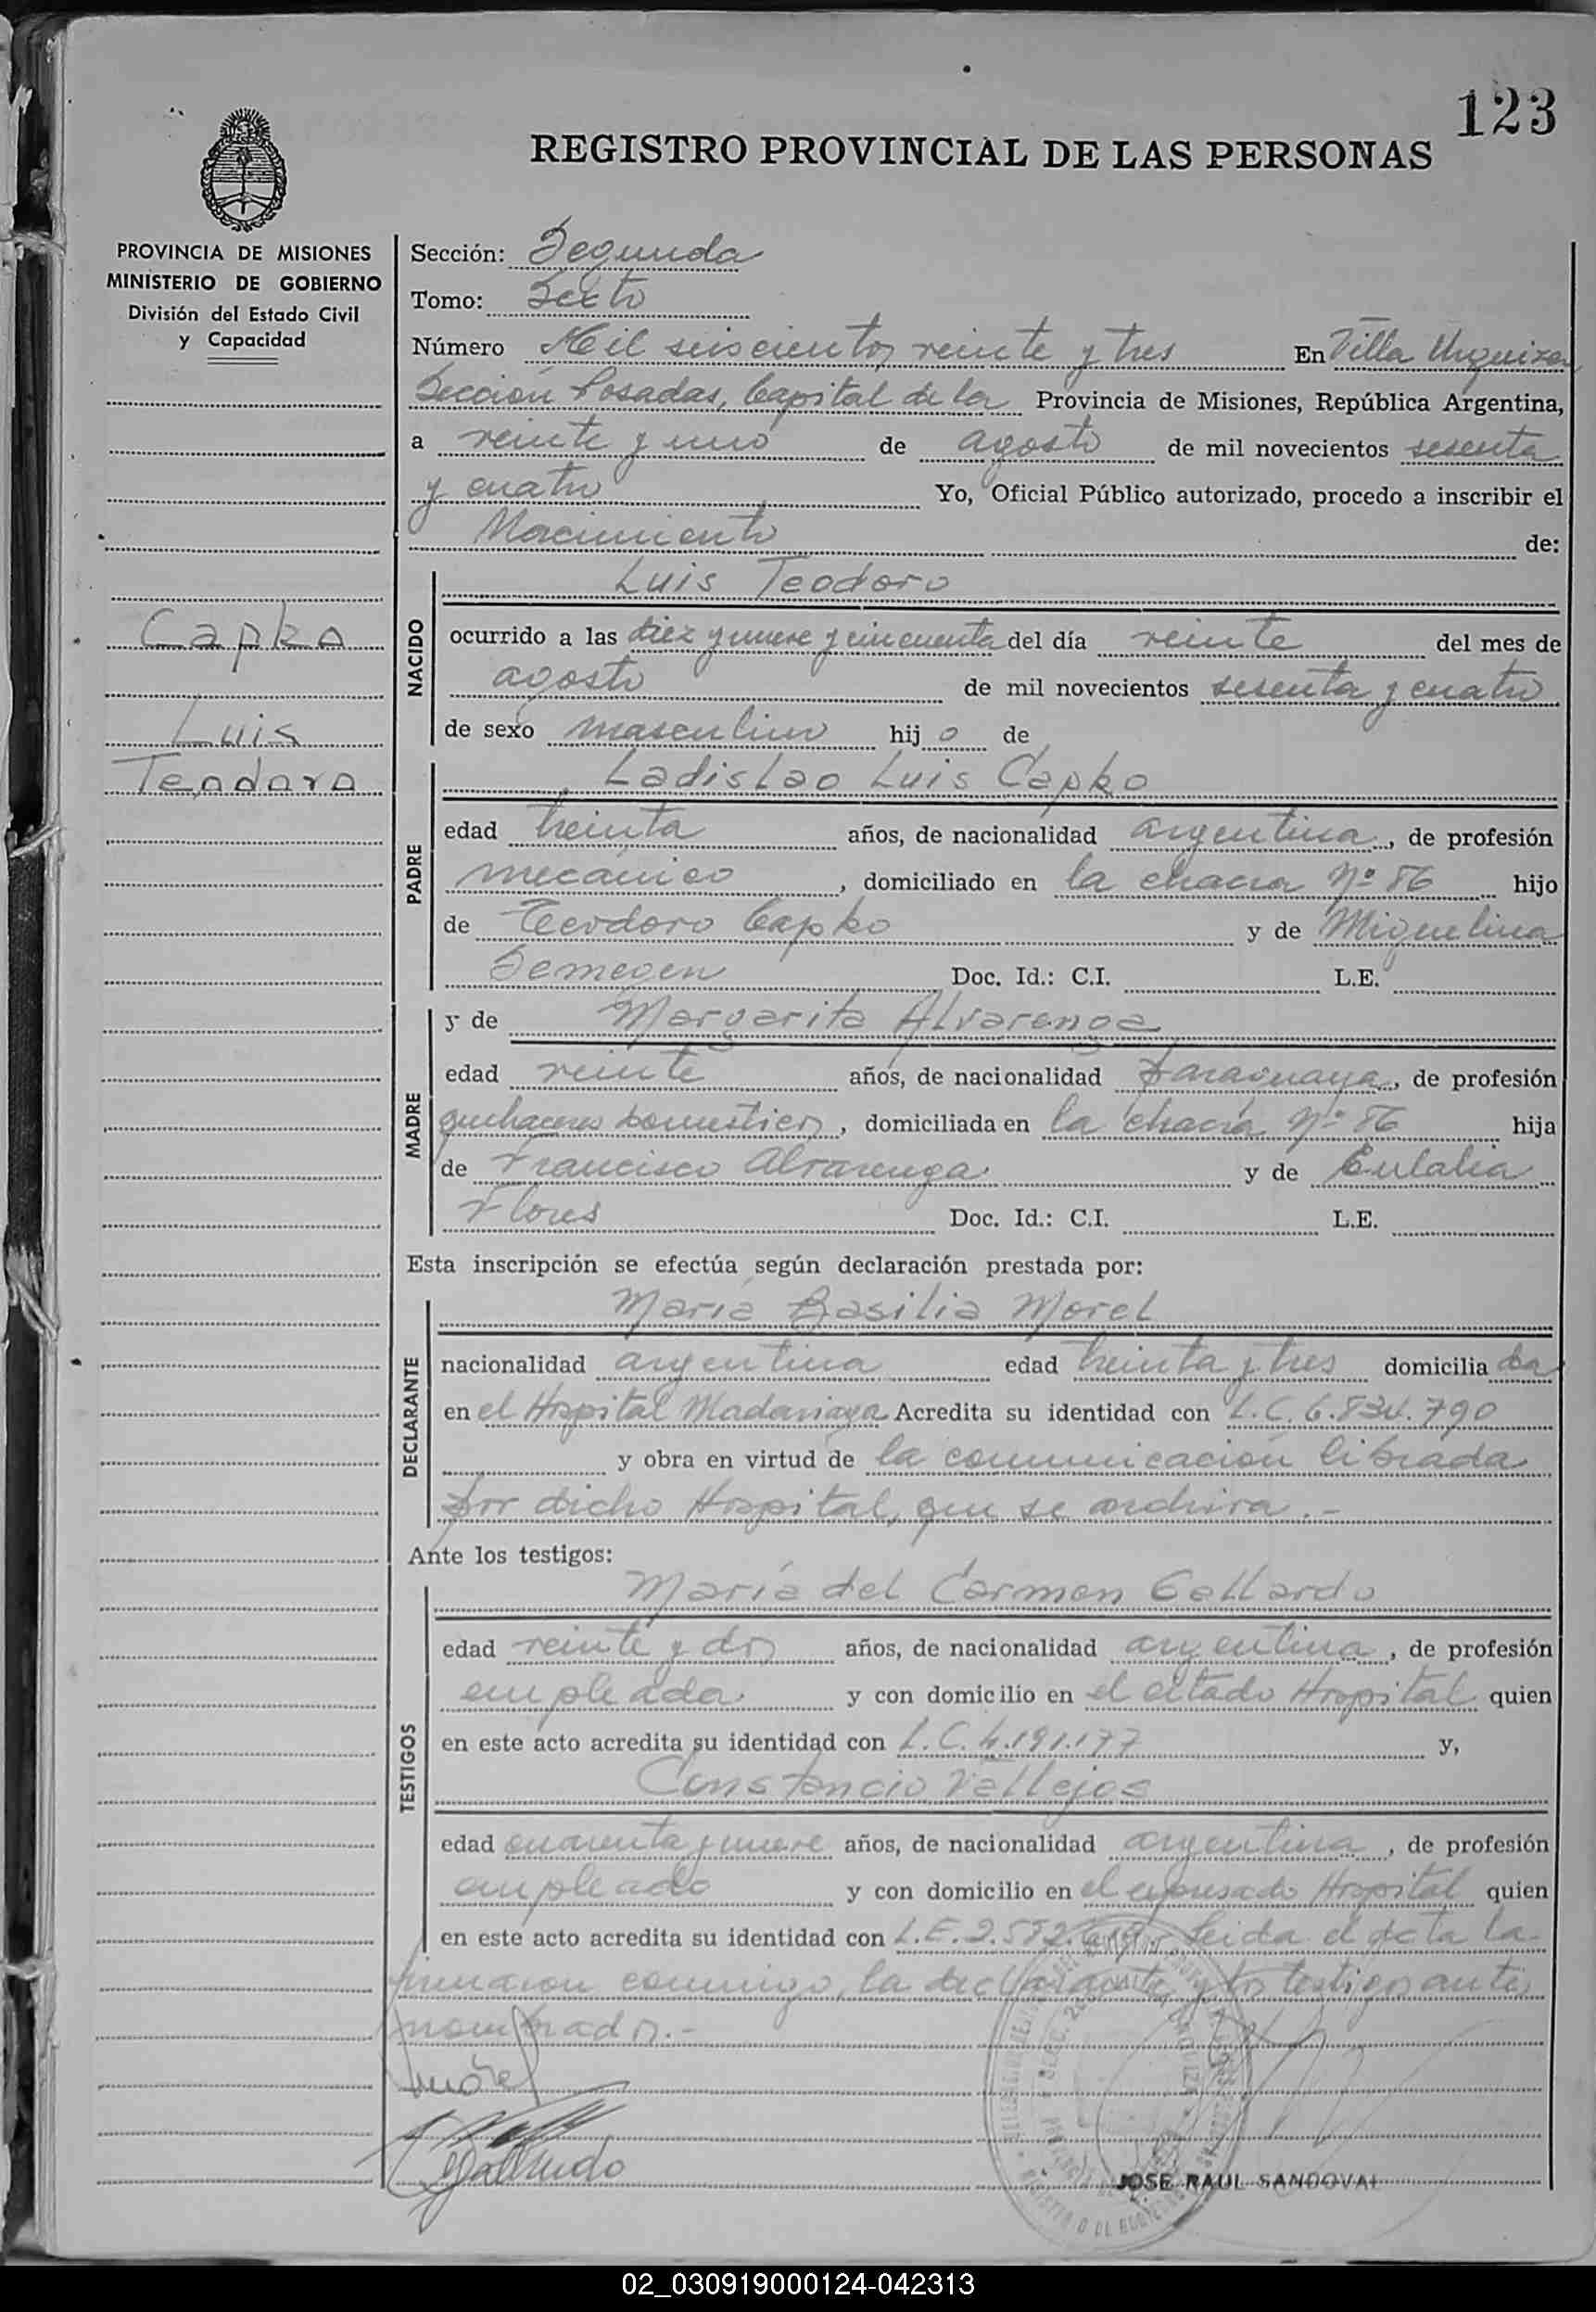 123
REGISTRO PROVINCIAL DE LAS PERSONAS
PROVINCIA DE MISIONES
MINISTERIO DE GOBIERNO
División del Estado Civil
y Capacidad
Capko
Luis
Teodoro
Sección: Segunda
Tomo: Sexto
Número Mil seiscientos veinte y tres En Villa Urquiza
Sección Posadas, Capital de la Provincia de Misiones, República Argentina,
a veinte y uno de agosto de mil novecientos sesenta
y cuatro Yo, Oficial Público autorizado, procedo a inscribir el
Nacimiento de:
NACIDO
Luis Teodoro
ocurrido a las diez y nueve y cincuenta del día veinte del mes de
agosto de mil novecientos sesenta y cuatro
de sexo masculino hijo de
PADRE
Ladislao Luis Capko
edad treinta años, de nacionalidad argentina, de profesión
mecánico, domiciliado en la chacra Nº 86 hijo
de Teodoro Capko y de Miguelina
Semegen Doc. Id.: C.I. L.E.
MADRE
y de Margarita Alvarenga
edad veinte años, de nacionalidad paraguaya, de profesión
quehaceres domesticos, domiciliada en la chacra Nº 86 hija
de Francisco Alvarenga y de Eulalia
Flores Doc. Id.: C.I. L.E.
Esta inscripción se efectúa según declaración prestada por:
DECLARANTE
María Basilia Morel
nacionalidad argentina edad treinta y tres domiciliada
en el Hospital Madariaga Acredita su identidad con L.C. 6.834.790
y obra en virtud de la comunicación librada
por dicho Hospital, que se archiva.-
Ante los testigos:
TESTIGOS
María del Carmen Gallardo
edad veinte y dos años, de nacionalidad argentina, de profesión
empleada y con domicilio en el citado Hospital quien
en este acto acredita su identidad con L.C. 4.191.177 y,
Constancio Vallejos
edad cuarenta y nueve años, de nacionalidad argentina, de profesión
empleado y con domicilio en el expresado Hospital quien
en este acto acredita su identidad con L.E. Leida el acta la
firmaron conmigo, la declarante y los testigos antes
nombrados.-
Morel
Gallardo
JOSE RAUL SANDOVAL
02_030919000124-042313